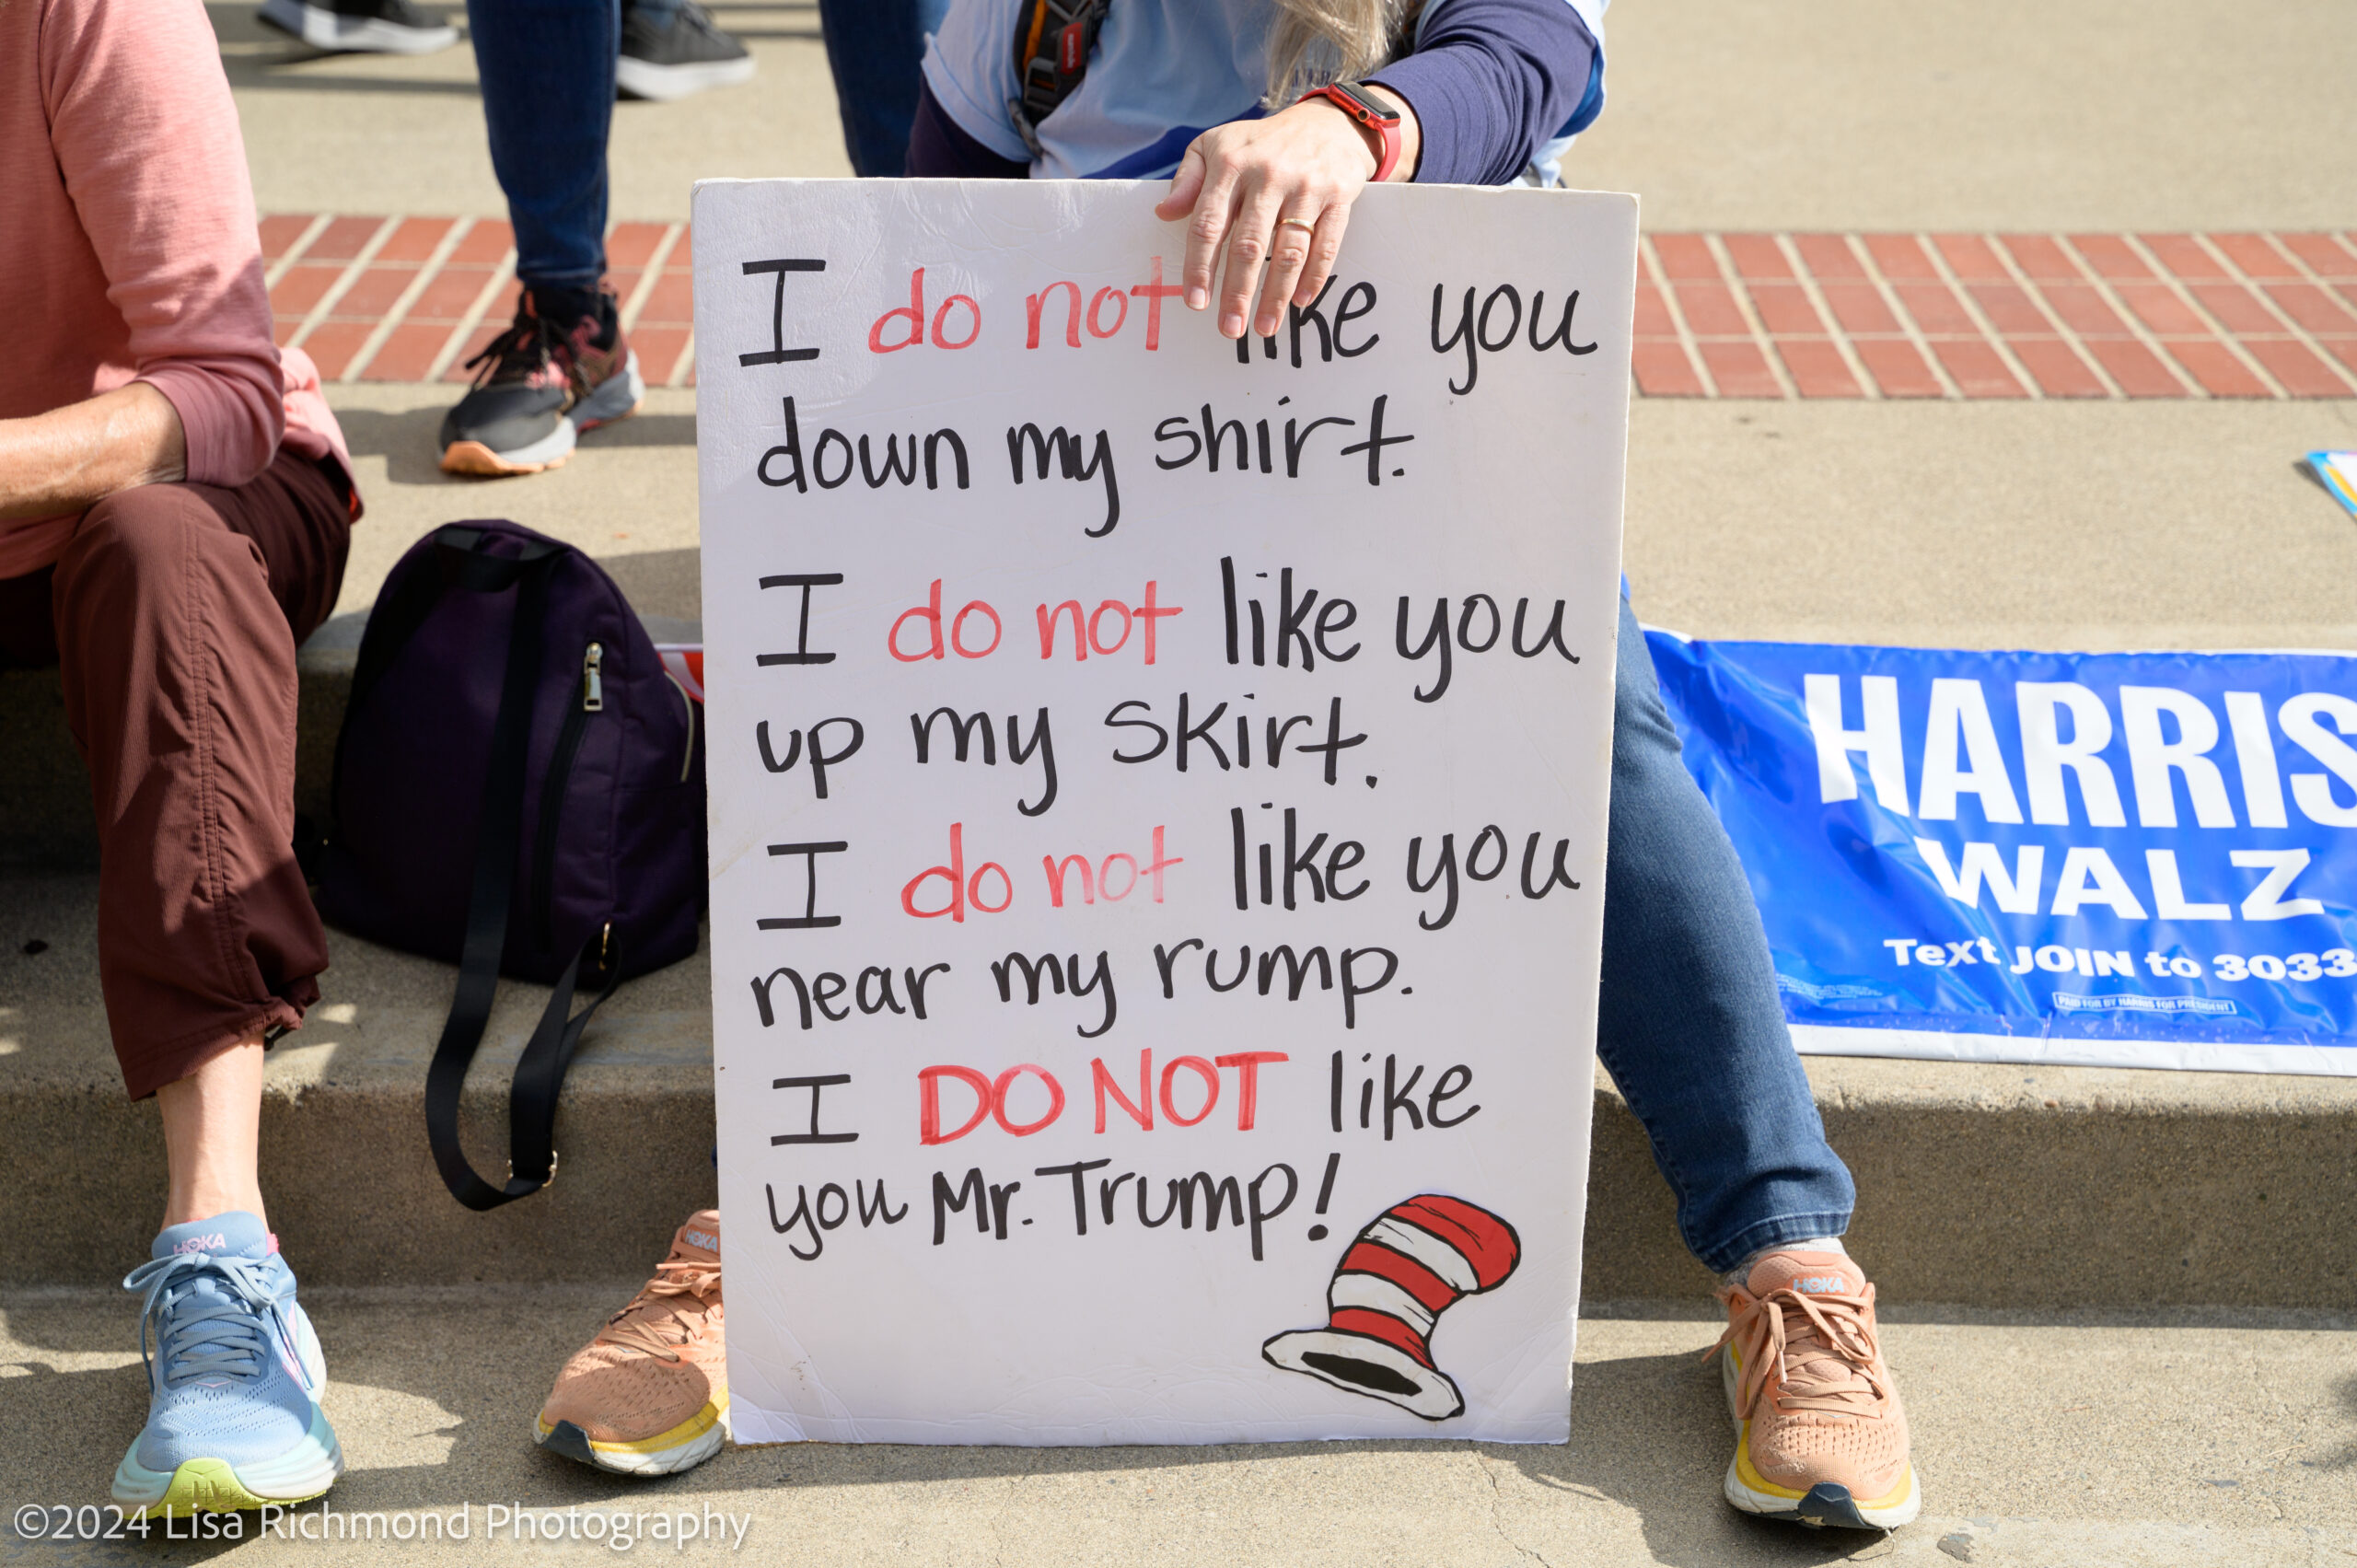 I do not like you
down my shirt.
I do not like you
up my skirt.
I do not like you
near my rump.
I DO NOT like
you Mr. Trump!
HARRIS
WALZ
Text JOIN to 3033
PAID FOR BY HARRIS FOR PRESIDENT
HOKA
HOKA
HOKA
©2024 Lisa Richmond Photography